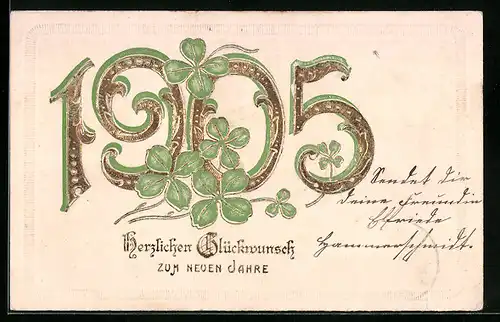 1905
Herzlichen Glückwunsch
ZUM NEUEN JAHRE
Sendet dir
deine Freundin
Elfriede
Hammerschmidt.